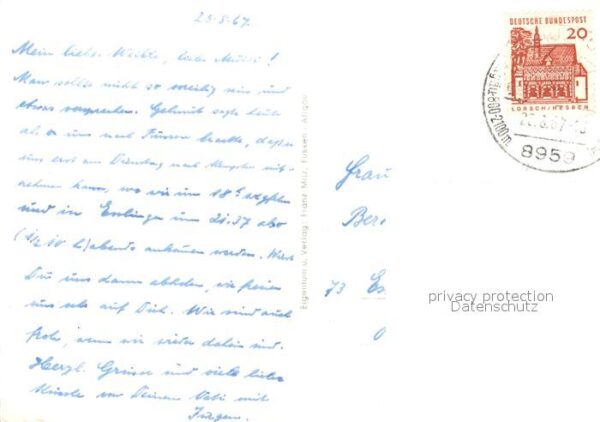 25-8-67.
Mein liebes , liebe !
Man sollte nicht so eilig sein und
etwas versprechen. Helmut sagte heute
als er uns nach Füssen brachte, daß er
uns erst am Dienstag nach Kempten mit-
nehmen kann, wo wir um 18 abfahren
und in Esslingen um 21.37 also
(1/2 10 h) abends ankommen werden. Wirst
Du uns dann abholen, wir freuen
uns sehr auf Dich. Wir sind auch
froh, wenn wir wieder daheim sind.
Herzl. Grüsse und viele liebe
Küssle von Deinem mit
Jürgen.
Eigentum u. Verlag: Franz Milz, Füssen, Allgäu
DEUTSCHE BUNDESPOST
20
LORSCH/HESSEN
800-2100m
8959
Frau
Ber.
73 Es
privacy protection
Datenschutz